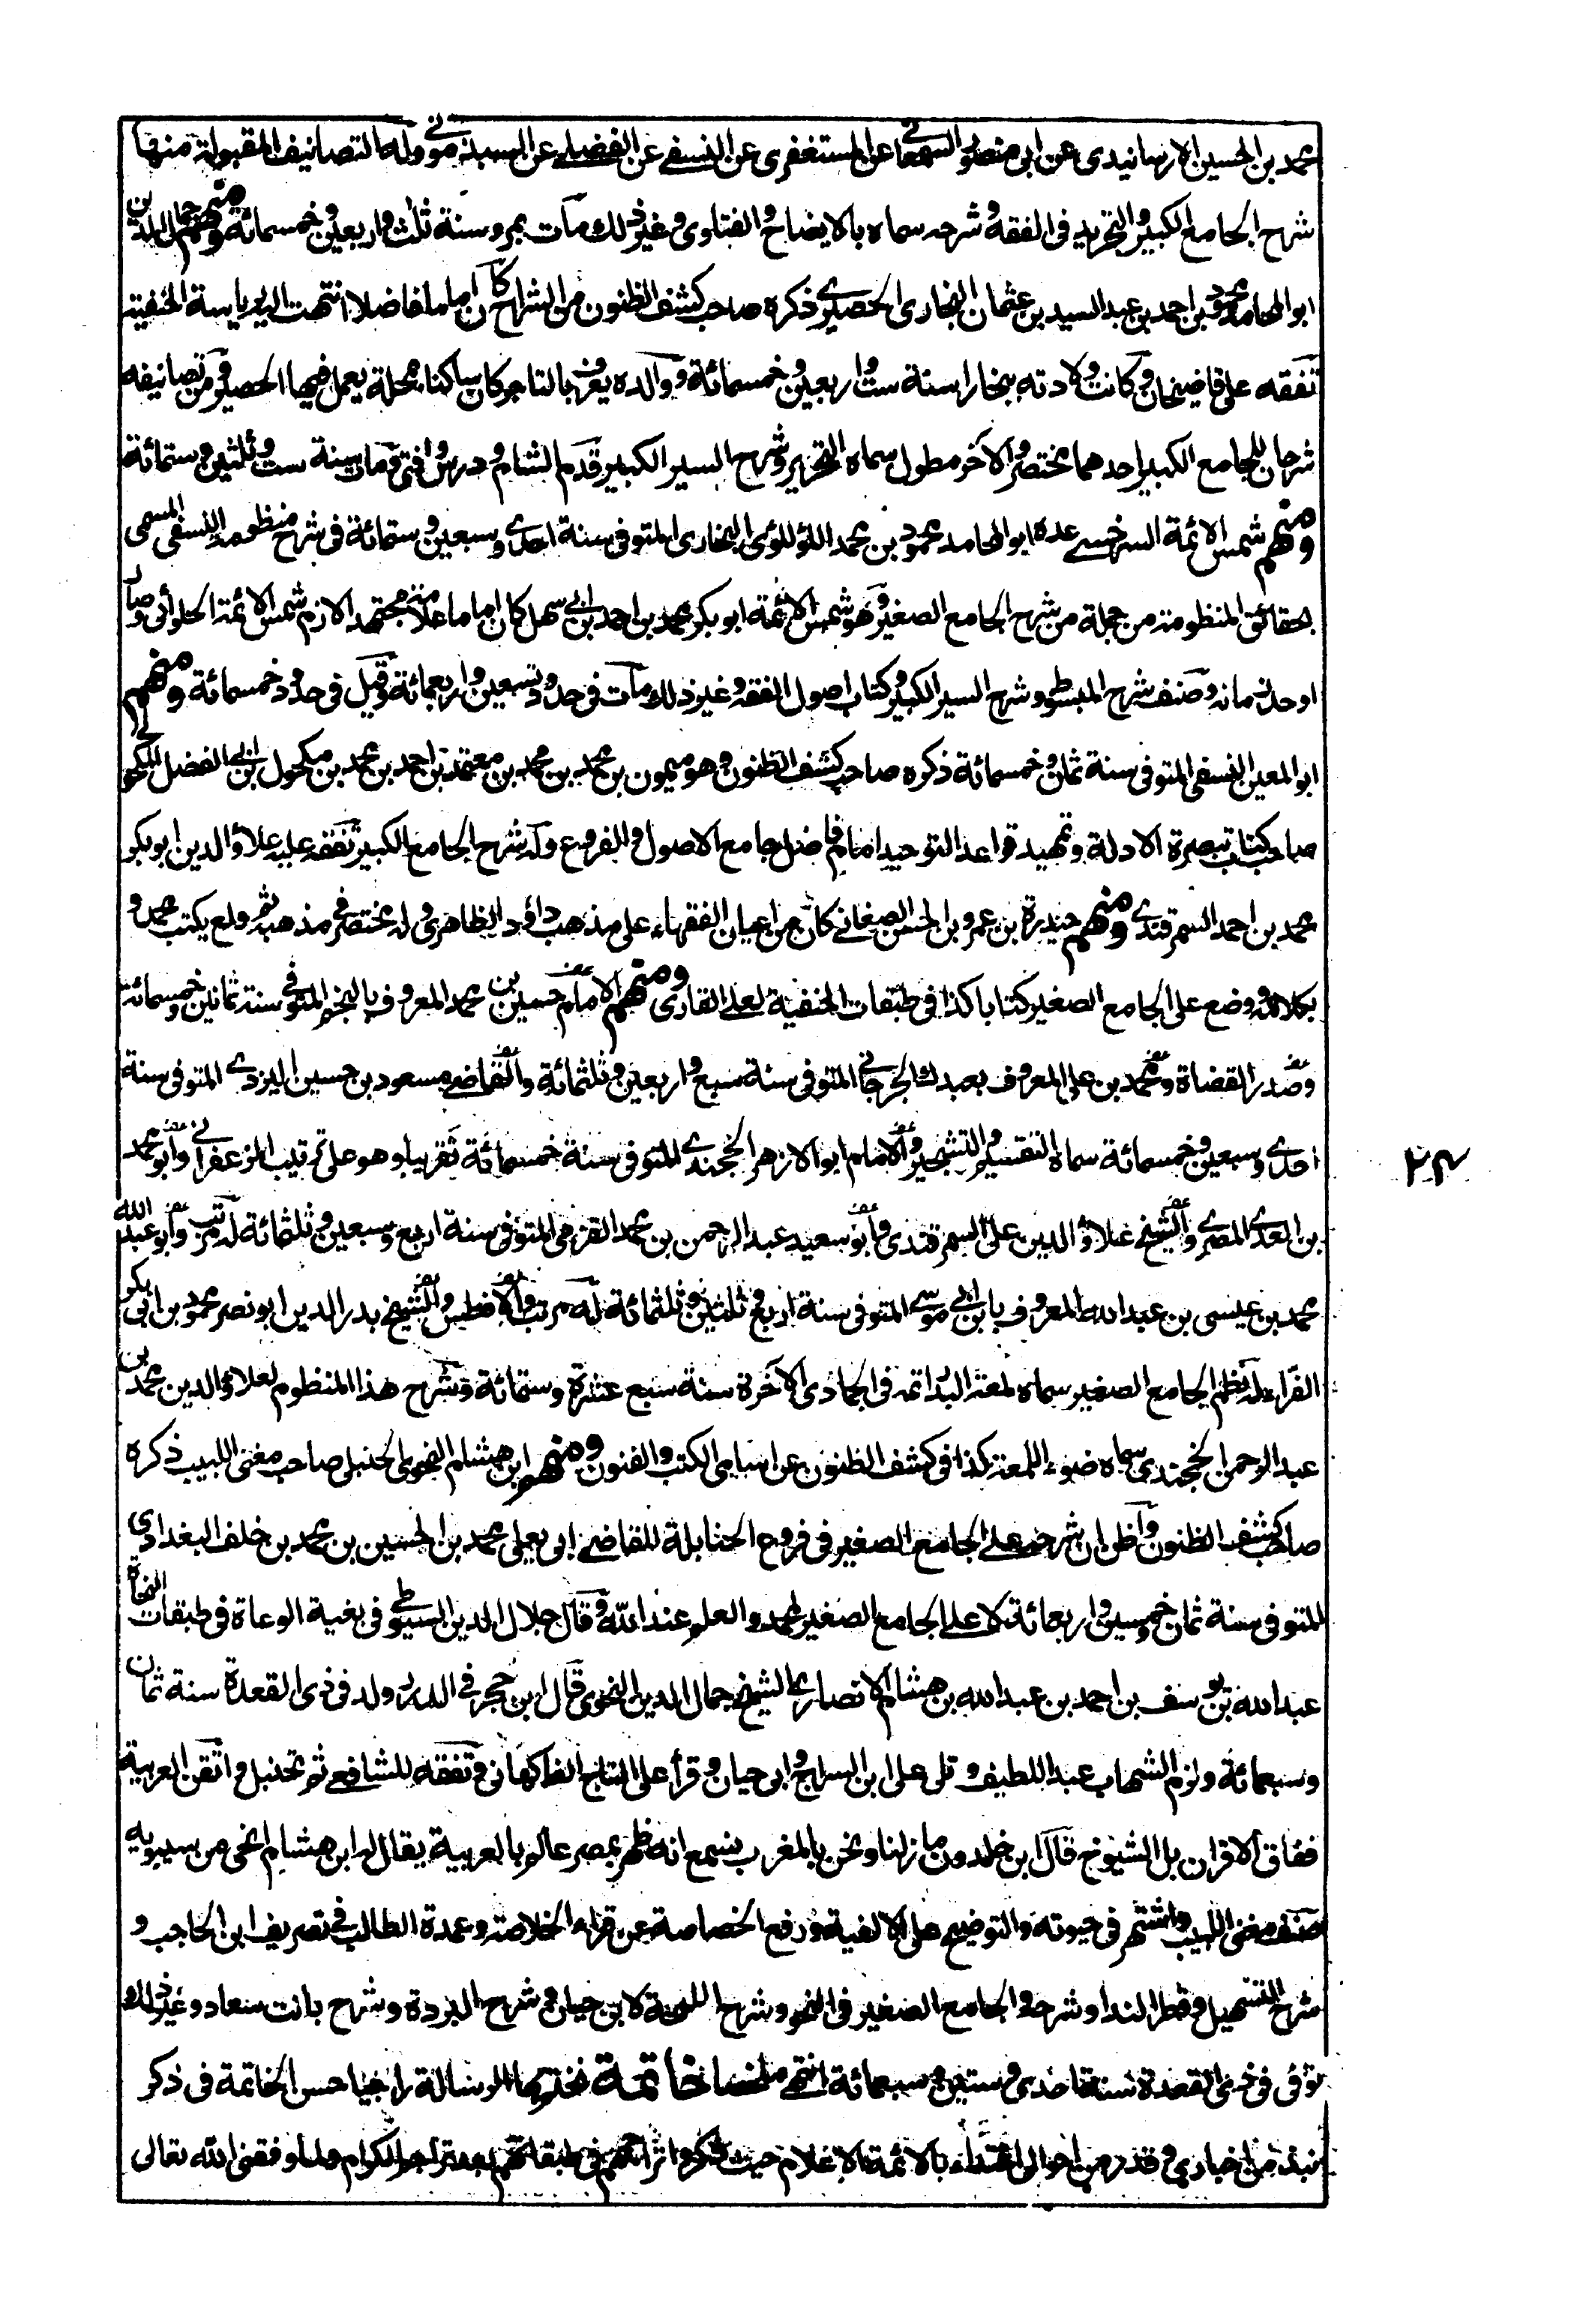 محمد بن الحسين الارسانيدى عن ابى منصور السمعانى عن المستغفرى عن النسفى عن الفضلى عن السبذمونى وله التصانيف المقبولة منها
شرح الجامع الكبير والتجريد فى الفقه وشرحه سماه بالايضاح والفتاوى وغير ذلك مات بمرو سنة ثلث واربعين وخمسمائة ومنهم جمال الدين
ابو المحامد محمود بن احمد بن عبد السيد بن عثمان البخارى الحصيرى ذكره صاحب كشف الظنون من الشراح كان اماما فاضلا انتهت اليه رياسة الحنفية
تفقه على قاضيخان وكانت ولادته ببخارا سنة ست واربعين وخمسمائة ووالده يعرف بالتاجر كان ساكنا بمحلة يعمل فيها الحصير ومن تصانيفه
شرحان للجامع الكبير احدهما مختصر والآخر مطول سماه التحرير وشرح السير الكبير قدم الشام ودرس وافتى ومات سنة ست وثلثين وستمائة
ومنهم شمس الائمة السرخسى عده ابو المحامد محمود بن محمد اللؤلؤى البخارى المتوفى سنة احدى وسبعين وستمائة فى شرح منظومة النسفى المسمى
بحقائق المنظومة من جملة من شرح الجامع الصغير وهو شمس الائمة ابو بكر محمد بن احمد بن ابى سهل كان اماما علامة مجتهدا لازم شمس الائمة الحلوانى وصار
اوحد زمانه وصنف شرح المبسوط وشرح السير الكبير وكتاب اصول الفقه وغير ذلك مات فى حدود تسعين واربعمائة وقيل فى حدود خمسمائة ومنهم
ابو المعين النسفى المتوفى سنة ثمان وخمسمائة ذكره صاحب كشف الظنون وهو ميمون بن محمد بن محمد بن معتمد بن احمد بن محمد بن مكحول بن ابى الفضل المكحولى
صاحب كتاب تبصرة الادلة وتمهيد قواعد التوحيد امام فاضل جامع الاصول والفروع وله شرح الجامع الكبير تفقه عليه علاؤ الدين ابو بكر
محمد بن احمد السمرقندى ومنهم حيدرة بن عمرو بن الحسن الصغانى كان من اعيان الفقهاء على مذهب داؤد الظاهرى وله مختصر فى مذهبه ثم ولع بكتب محمد و
بكلامه ووضع على الجامع الصغير كتابا كذا فى طبقات الحنفية لعلى القارى ومنهم الامام حسين بن محمد المعروف بالنجم المتوفى سنة ثمانين وخمسمائة
وصدر القضاة ومحمد بن على المعروف بعبدك الجرجانى المتوفى سنة سبع واربعين وثلثمائة والقاضى مسعود بن حسين اليزدى المتوفى سنة
احدى وسبعين وخمسمائة سماه التقسيم والتشجير والامام ابو الازهر الخجندى المتوفى سنة خمسمائة تقريبا وهو على ترتيب الزعفرانى وابو محمد
بن العدى المصرى والشيخ علاؤ الدين على السمرقندى وابو سعيد عبد الرحمن بن محمد القزمى المتوفى سنة اربع وسبعين وثلثمائة له مرتب وابو عبد الله
محمد بن عيسى بن عبد الله المعروف بابن ابى موسى المتوفى سنة اربع وثلثين وثلثمائة له مرتب والافطس والشيخ بدر الدين ابو نصر محمود بن ابى بكر
الفراء له نظم الجامع الصغير سماه لمعة البدر اتمه فى الجمادى الآخرة سنة سبع عشرة وستمائة وشرح هذا المنظوم لعلاؤ الدين محمد بن
عبد الرحمن الخجندى سماه ضوء اللمعة كذا فى كشف الظنون عن اسامى الكتب والفنون ومنهم ابن هشام النحوى الحنبلى صاحب مغنى اللبيب ذكره
صاحب كشف الظنون واظن ان شرحه على الجامع الصغير فى فروع الحنابلة للقاضى ابى يعلى محمد بن الحسين بن محمد بن خلف البغدادى
المتوفى سنة ثمان وخمسين واربعمائة لا على الجامع الصغير لمحمد والعلم عند الله وقال جلال الدين السيوطى فى بغية الوعاة فى طبقات النحاة
عبد الله بن يوسف بن احمد بن عبد الله بن هشام الانصارى الشيخ جمال الدين النحوى قال ابن حجر فى الدرر ولد فى ذى القعدة سنة ثمان
وسبعمائة ولزم الشهاب عبد اللطيف وتلى على ابن السراج وابى حيان وقرأ على التاج الفاكهانى وتفقه للشافعى ثم تحنبل واتقن العربية
ففاق الاقران بل الشيوخ قال ابن خلدون ما زلنا ونحن بالمغرب نسمع انه ظهر بمصر عالم بالعربية يقال له ابن هشام انحى من سيبويه
صنف مغنى اللبيب واشتهر فى حيوته والتوضيح على الالفية ورفع الخصاصة عن قراء الخلاصة وعمدة الطالب فى تصريف ابن الحاجب و
شرح التسهيل وقطر الندا وشرحه والجامع الصغير فى النحو وشرح اللمحة لابن حيان وشرح البردة وشرح بانت سعاد وغير ذلك
توفى فى ذى القعدة سنة احدى وستين وسبعمائة انتهى ملخصا خاتمة نختم بها الرسالة راجيا حسن الخاتمة فى ذكر
نبذ من اخبارى وقدر من احوالى اقتداء بالائمة الاعلام حيث ذكروا تراجمهم فى طبقاتهم بعد تراجم الكرام ولما وفقنى الله تعالى
٢٣